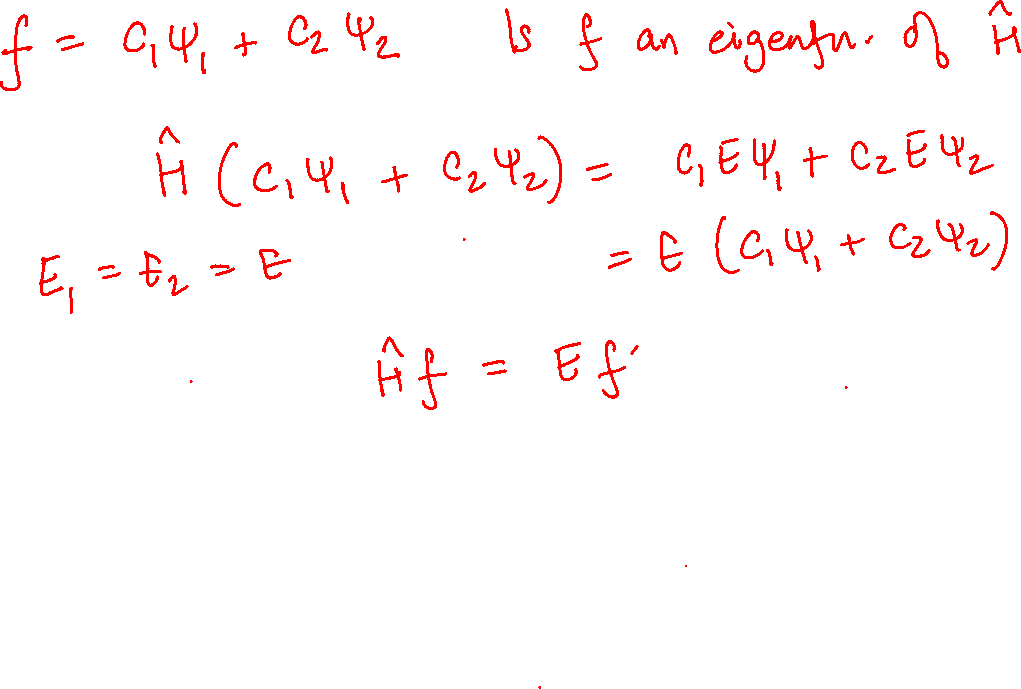 f = C₁Ψ₁ + C₂Ψ₂ Is f an eigenfn. of Ĥ
Ĥ (C₁Ψ₁ + C₂Ψ₂) = C₁EΨ₁ + C₂EΨ₂
E₁ = E₂ = E = E (C₁Ψ₁ + C₂Ψ₂)
Ĥf = Ef